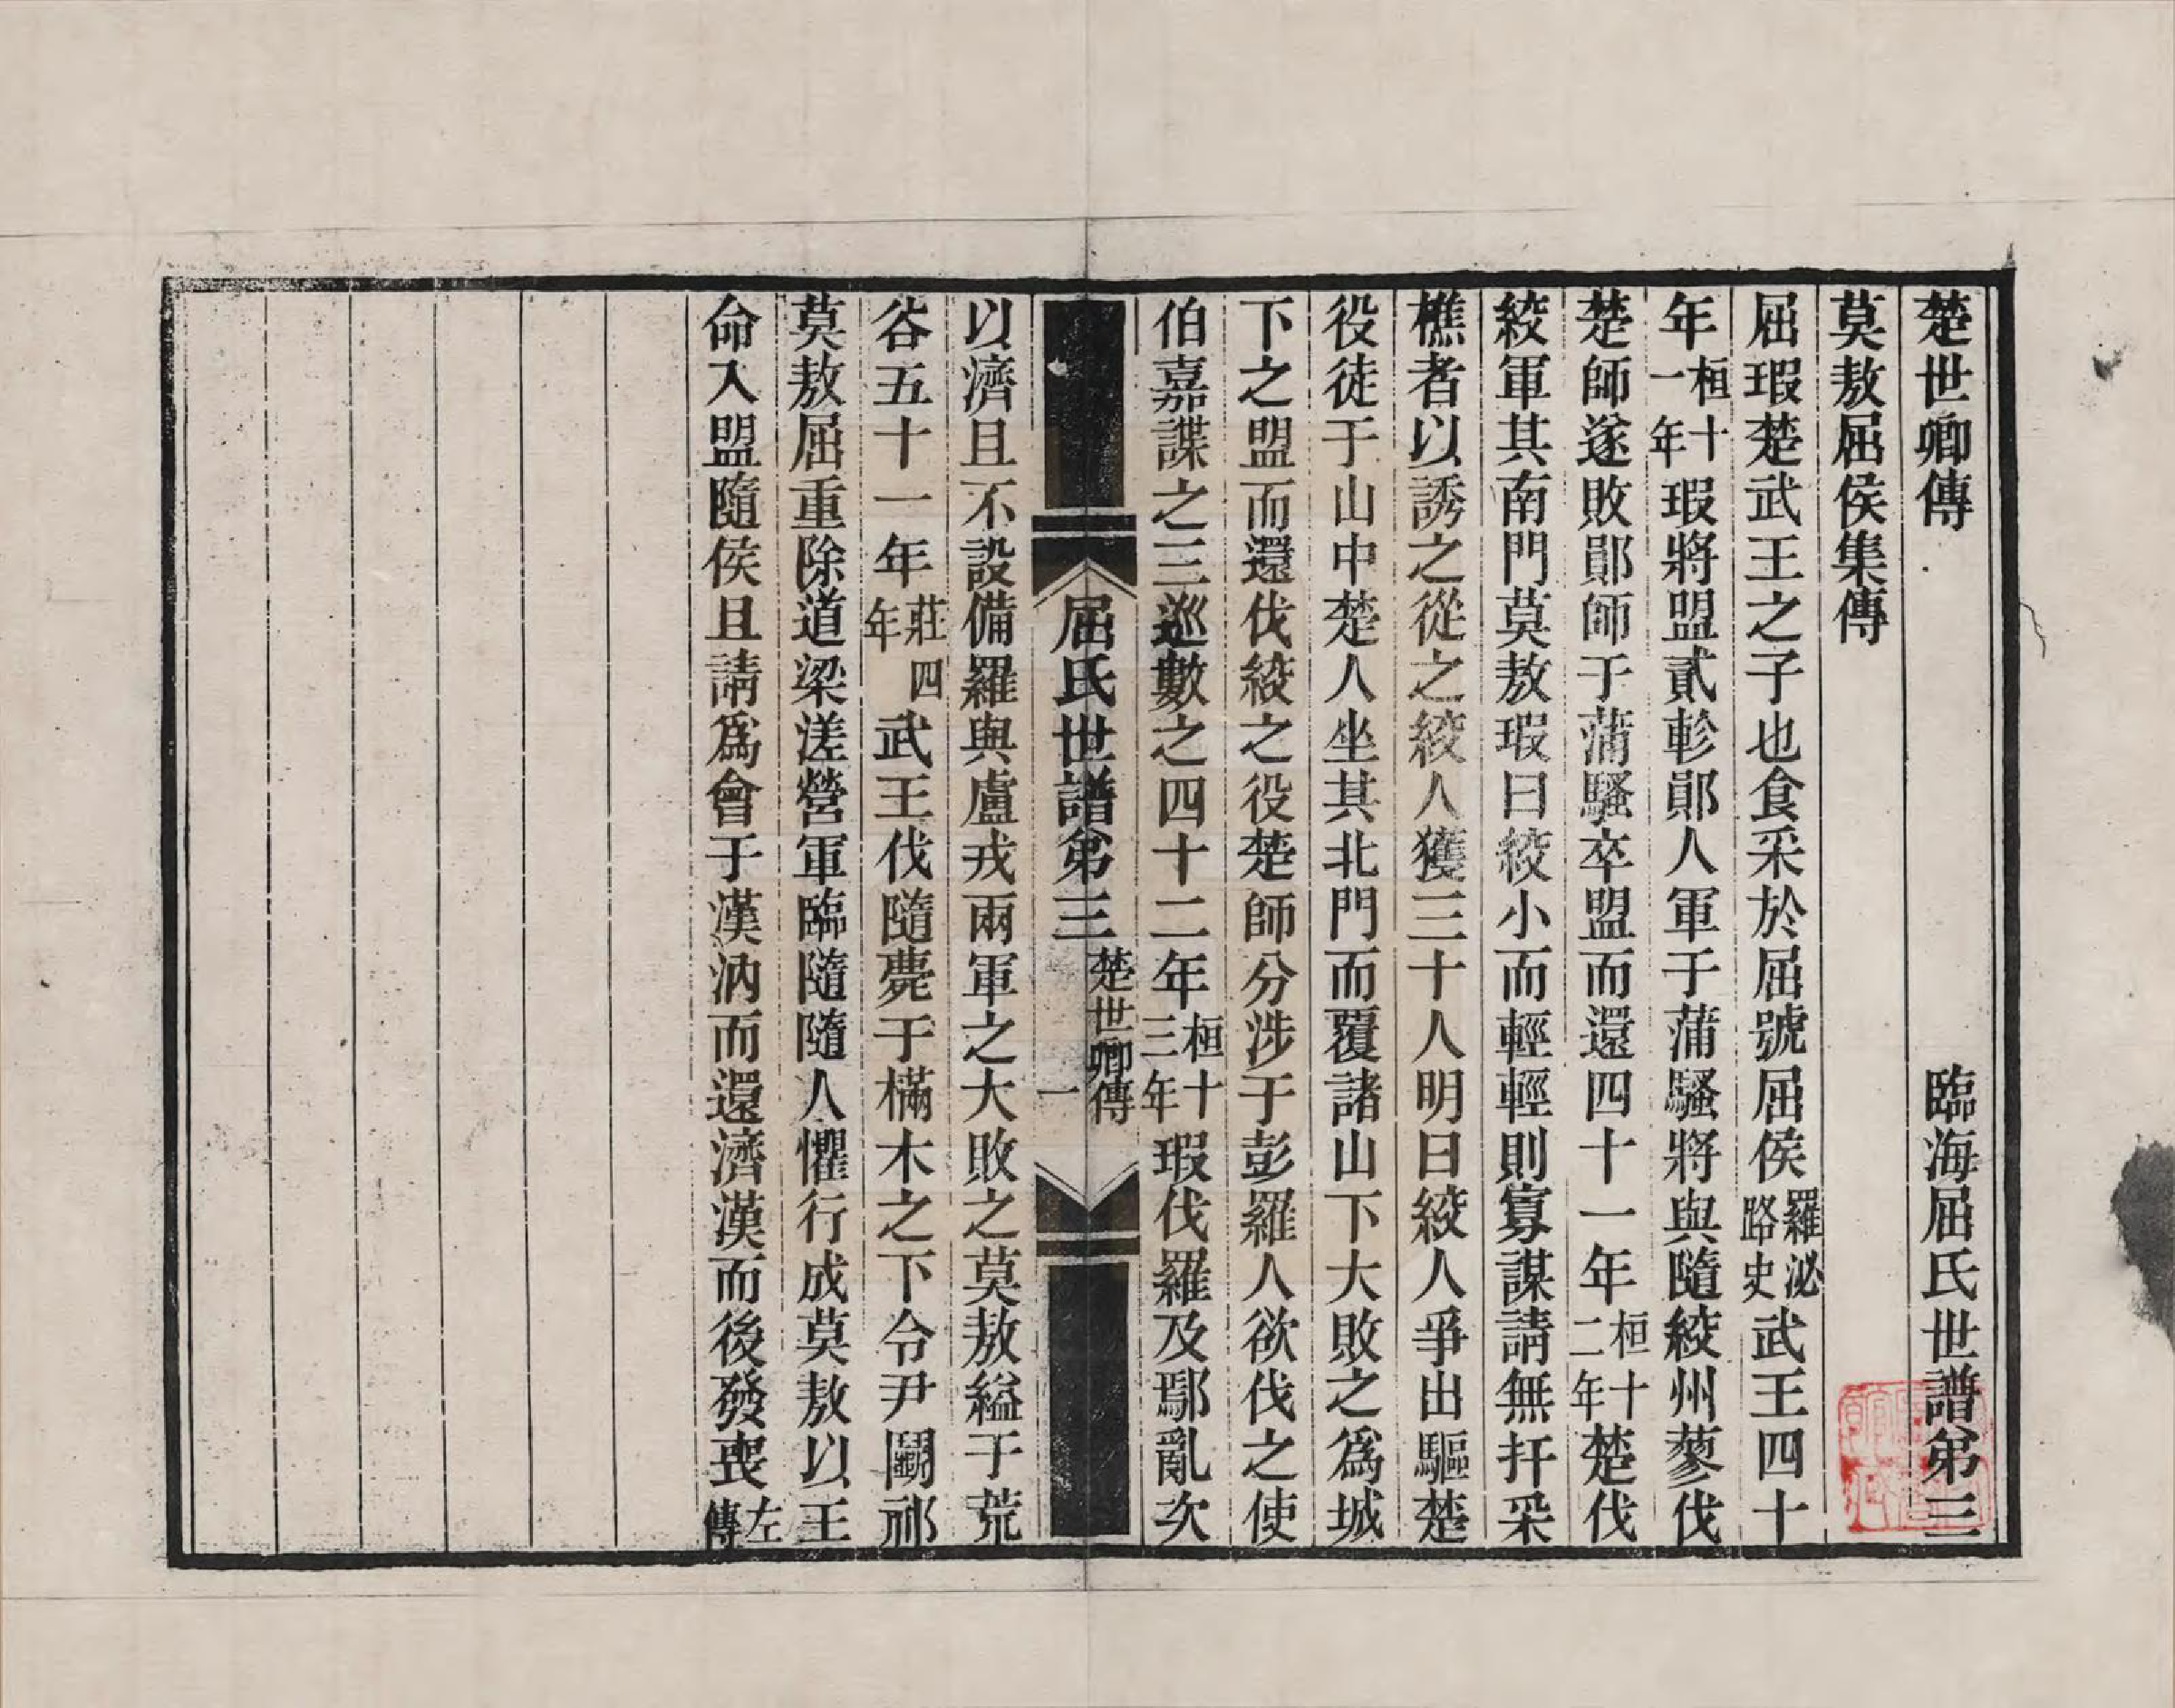 楚世卿傳　　　　　　　　　臨海屈氏世譜弟三
莫敖屈侯集傳
屈瑕楚武王之子也食采於屈號屈侯羅泌路史武王四十
年桓十一年瑕將盟貳軫鄖人軍于蒲騷將與隨絞州蓼伐
楚師遂敗鄖師于蒲騷卒盟而還四十一年桓十二年楚伐
絞軍其南門莫敖瑕曰絞小而輕輕則寡謀請無扞采
樵者以誘之從之絞人獲三十人明日絞人爭出驅楚
役徒于山中楚人坐其北門而覆諸山下大敗之爲城
下之盟而還伐絞之役楚師分涉于彭羅人欲伐之使
伯嘉諜之三巡數之四十二年桓十三年瑕伐羅及鄢亂次
屈氏世譜弟三　楚世卿傳　一
以濟且不設備羅與盧戎兩軍之大敗之莫敖縊于荒
谷五十一年莊四年武王伐隨薨于樠木之下令尹鬭祁
莫敖屈重除道梁溠營軍臨隨隨人懼行成莫敖以王
命入盟隨侯且請爲會于漢汭而還濟漢而後發喪左傳